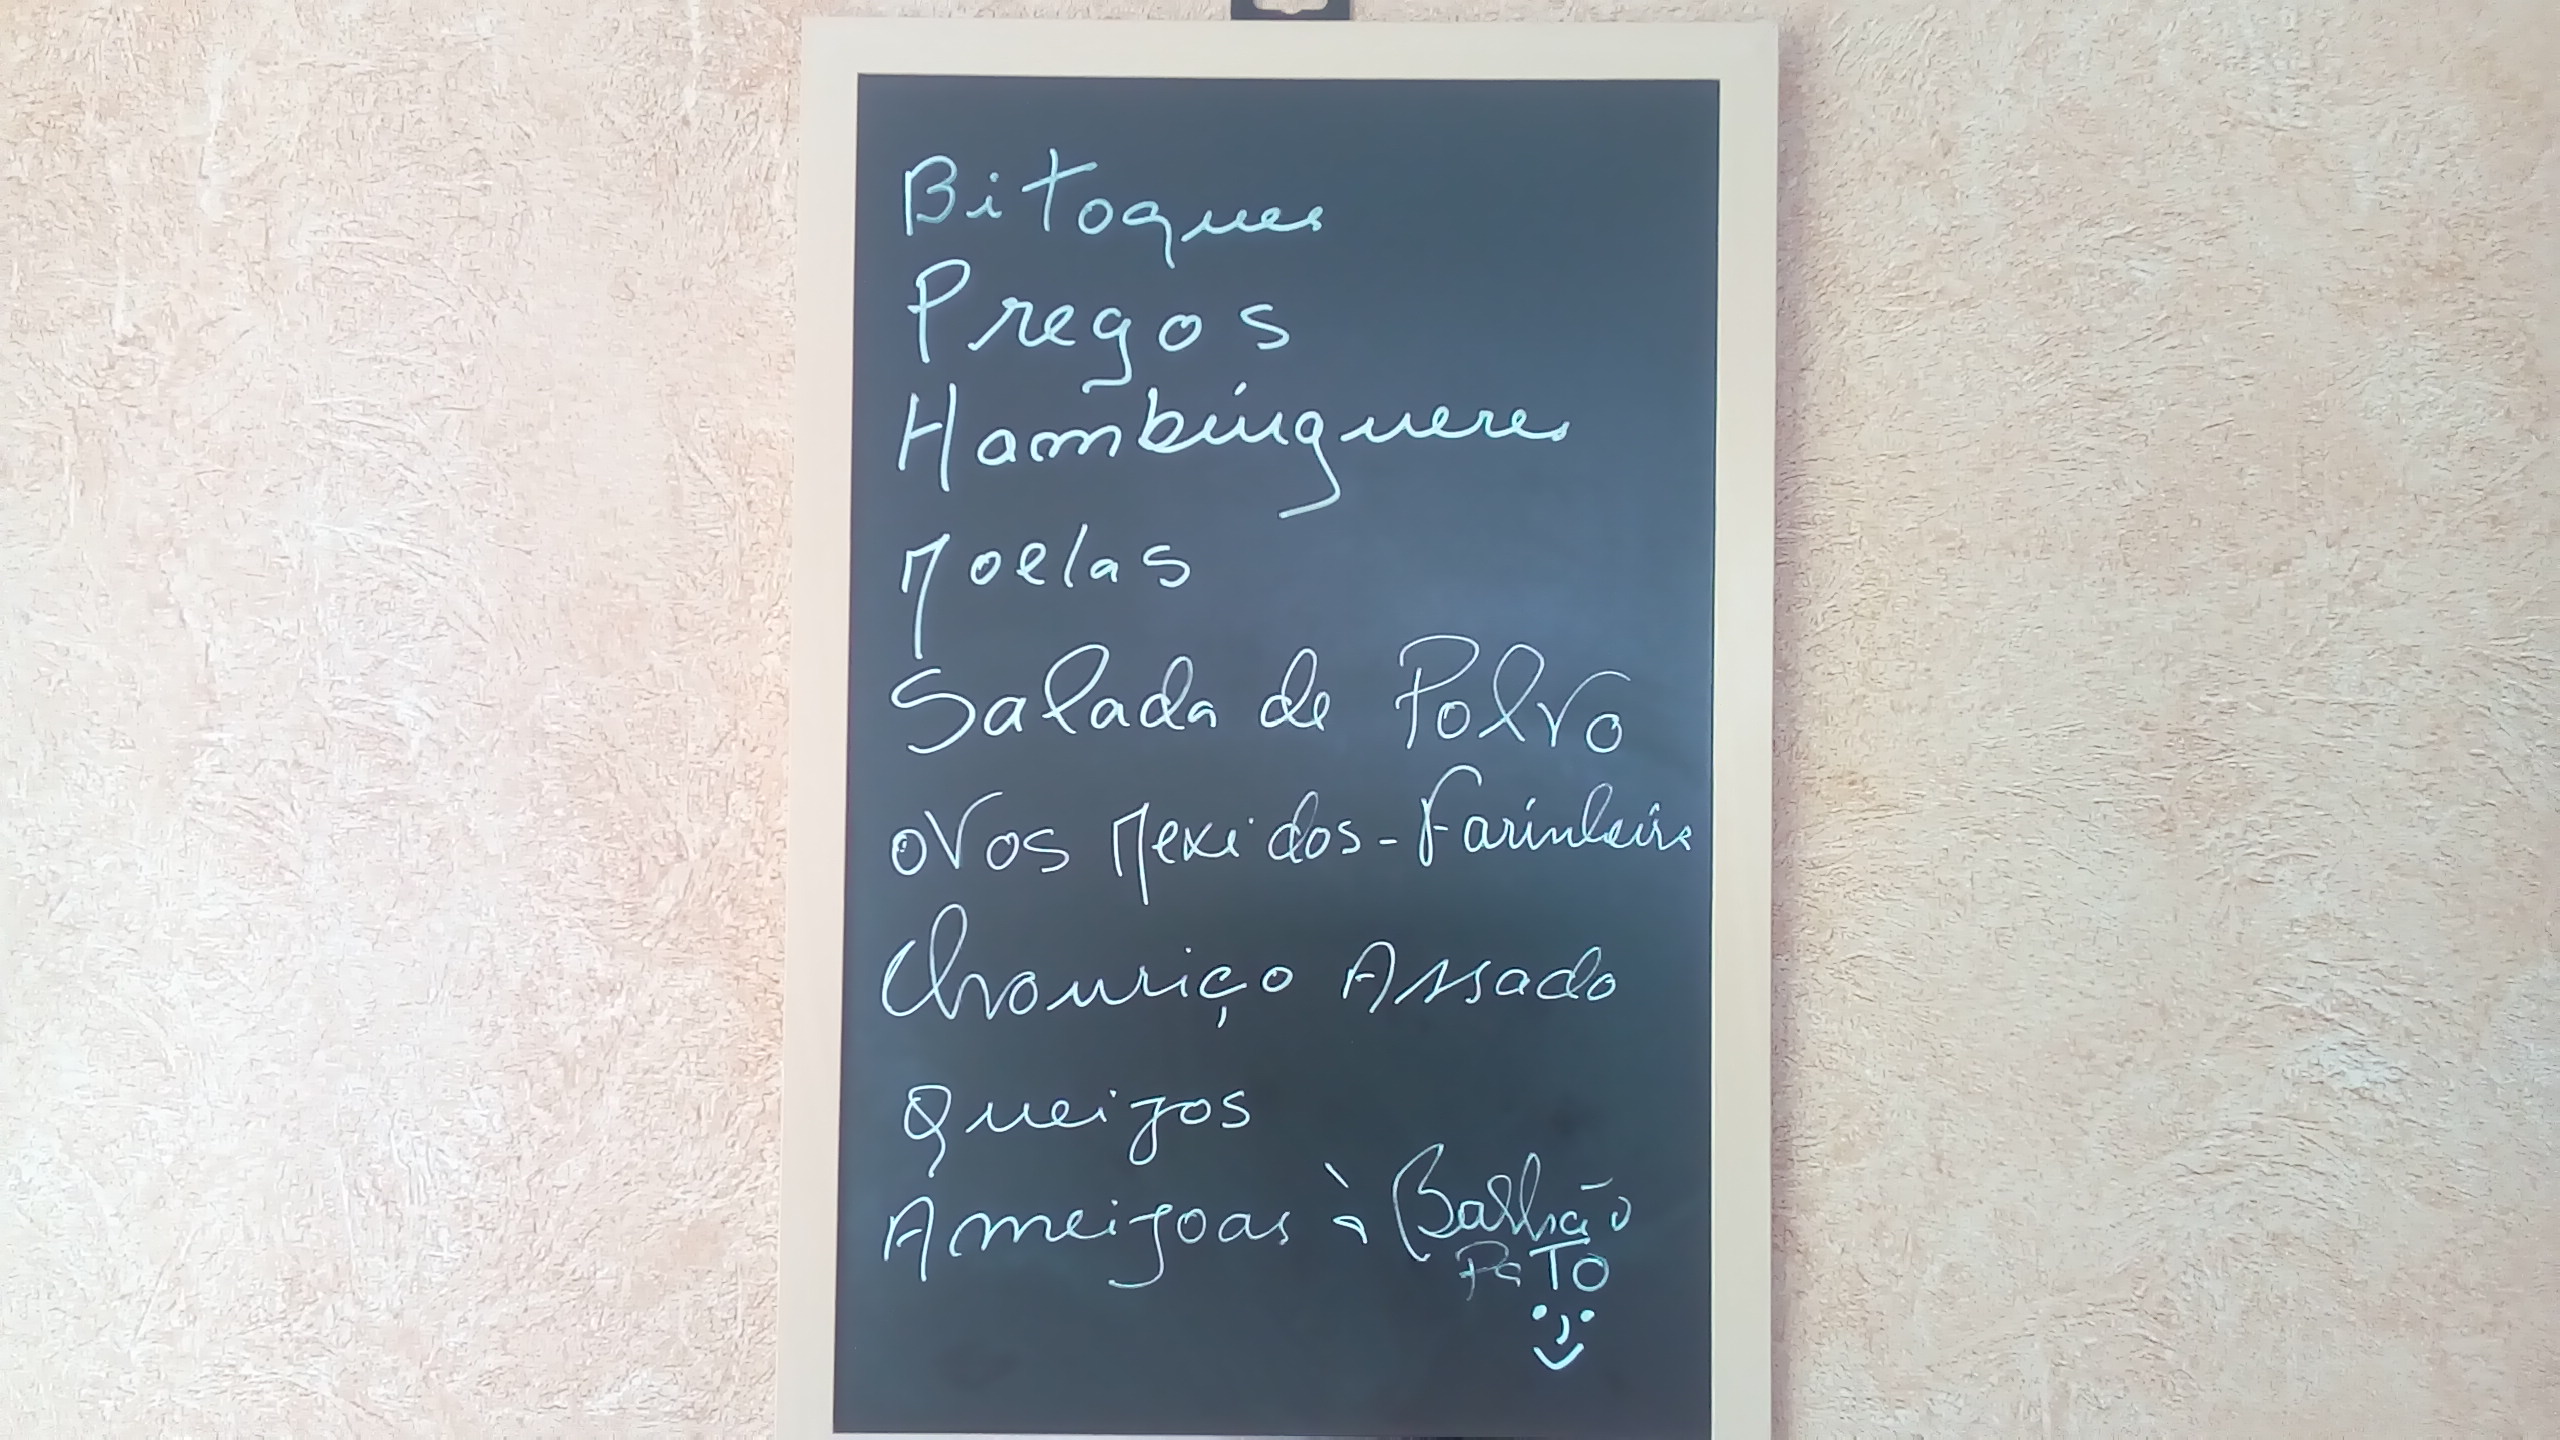 Bitoques
Pregos
Hambúrgueres
Moelas
Salada de Polvo
Ovos Mexidos-Farinheira
Chouriço Assado
Queijos
Ameijoas à Balhão
PaTO